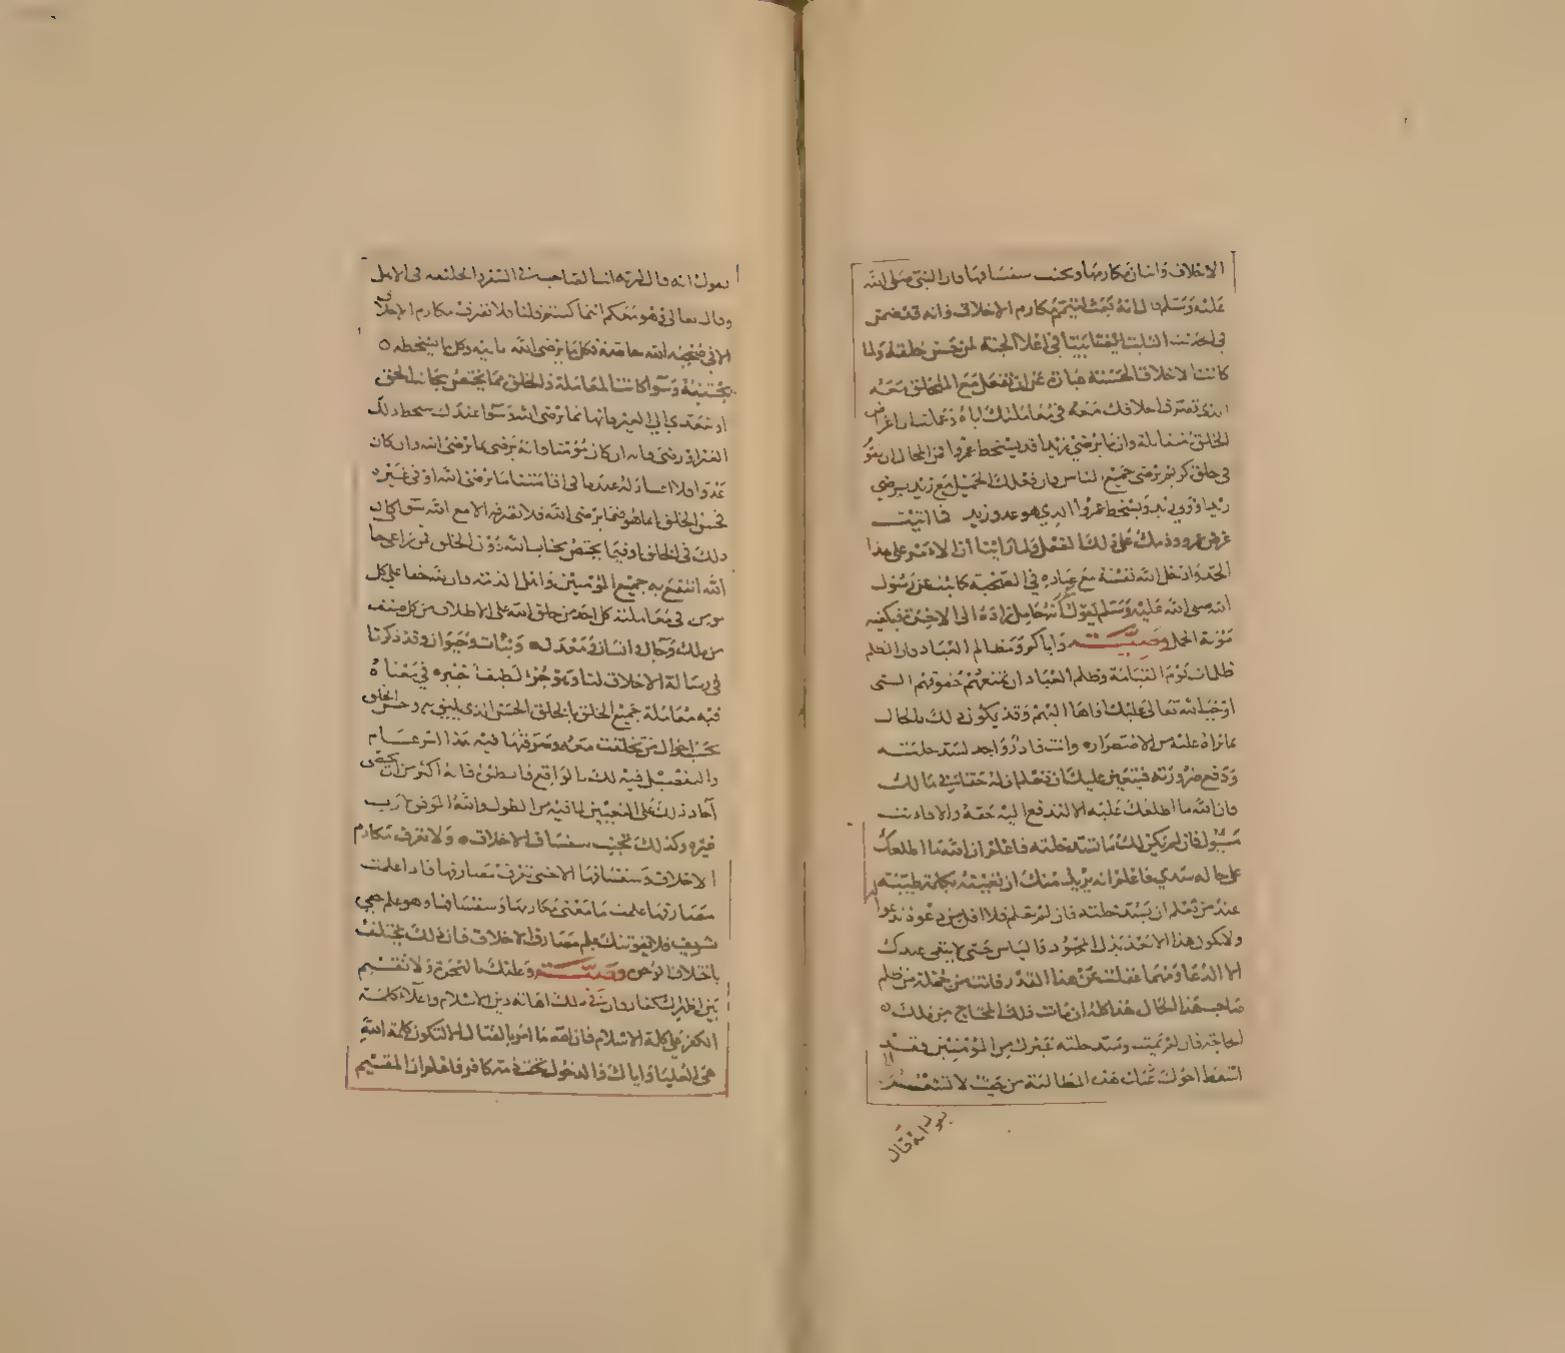 الاخلاق واتيان مكارمها وتجنب سفسافها فان النبي صلى الله
عليه وسلم قال انه بعث ليتمم مكارم الاخلاق وانه قد ضمن
بيتا في اعلا الجنة لمن حسن خلقه ولما
كانت الاخلاق الحسنة عبارة عن ان تفعل مع المتخلق معه
الذي تصرف اخلاقك معه في معاملتك اياه وعلمنا ان اغراض
الخلق متقابلة وان ما يرضي زيدا قد يسخط عمروا فمن المحال ان يقوم
في خلق كريم يرضي جميع الناس فان فعلك الجميل مع زيد يرضي
زيدا ويسخط عمروا الذي هو عدو زيد فما اتيت
غرض عمرو وذمك على ذلك الفعل ولما راينا ان الامر على هذا
الحد وادخل الله نفسه مع عباده في الصحبة كما ثبت عن رسول
الله صلى الله عليه وسلم
مؤنة الحمل وصية واياكم ومظالم العباد فان الظلم
ظلمات يوم القيامة وظلم العباد ان تمنعهم حقوقهم التي
اوجب الله تعالى عليك اداها اليهم وقد يكون ذلك بالحال
بما تراه عليه من الاضطرار وانت قادر واجد لسد خلته
ودفع ضرورته فيتعين عليك ان تعلم ان له حقا في مالك
فان الله ما اطلعك عليه الا لتدفع اليه حقه والا فانت
مسؤل فان لم يكن لك ما تسد خلته فاعلم ان الله ما اطلعك
على حاله سدي فاعلم انه يريد منك ان تعينه بكلمة طيبة
عند من تعلم ان يسد خلته فان لم تعلم فلا اقل من دعوة تدعوا
ولا تكون هذا الا بعد بذل المجهود والياس حتى لا يبقى عندك
الا الدعا ومهما غفلت عن هذا القدر فانت من جملة من ظلم
صاحب هذا الحال هذا كله ان مات ذلك المحتاج من تلك
الحاجة فان لم يمت وسد خلته غيرك من المؤمنين فقد
اسقط اخوك عنك هذه المطالبة من حيث لا تشعر
يقول انه قال
يقول انه قال لربه انت الصاحب في السفر والخليفة في الاهل
وقال تعالى وهو معكم اينما كنتم قلنا فلا تصرف مكارم الاخلاق
الا في صحبة الله خاصة فكل ما يرضي الله ناتيه وكل ما يسخطه
نجتنبه وسوا كانت المعاملة والخلق مما يختص بجانب الحق
او تتعدى الى الغير فانها مما يرضي الله وسوا عندك سخط ذلك
الغير او رضي فانه ان كان مؤمنا فانه يرضى بما يرضى الله وان كان
عدوا فلا اعتبار له عندنا
فحسن الخلق انما هو فيما يرضي الله فلا تصرفه الا مع الله سوا كان
ذلك في الخلق او فيما يختص بجناب الله دون الخلق فمن راعى جناب
الله انتفع به جميع المؤمنين واهل الذمة فان لله حقا على كل
مومن في معاملته كل احد من خلق الله على الاطلاق من كل صنف
من ملك وجان وانسان ومعدن ونبات وحيوان وقد ذكرنا
في رسالة الاخلاق لنا وهو جزء لطيف
فيه معاملة جميع الخلق بالخلق الحسن الذي يليق به وحسن الخلق
بحسب احوال من تتخلق معه وتصرفها فيه هذا امر عام
والتفصيل فيه لك بالواقع فانظر فيه فانه اكثر من ان تحصى
آحاد ذلك على التعيين لما فيه من الطول والله الموفق لا رب
غيره وكذلك تجنب سفساف الاخلاق ولا تعرف مكارم
الاخلاق وسفسافها الا حتى تعرف مصارفها فاذا علمت
مصارفها علمت ما معنى مكارمها وسفسافها وهو علم خفي
شريف فلا يفوتنك علم مصارف الاخلاق فان ذلك يختلف
باختلاف الوجوه وصية وعليك بالهجرة ولا تقيم
بين اظهر الكفار فان في ذلك اهانة دين الاسلام واعلاء كلمة
الكفر على كلمة الاسلام فان الله ما امر بالقتال الا لتكون كلمة الله
هي العليا واياك والدخول تحت ذمة كافر فاعلم ان المقيم